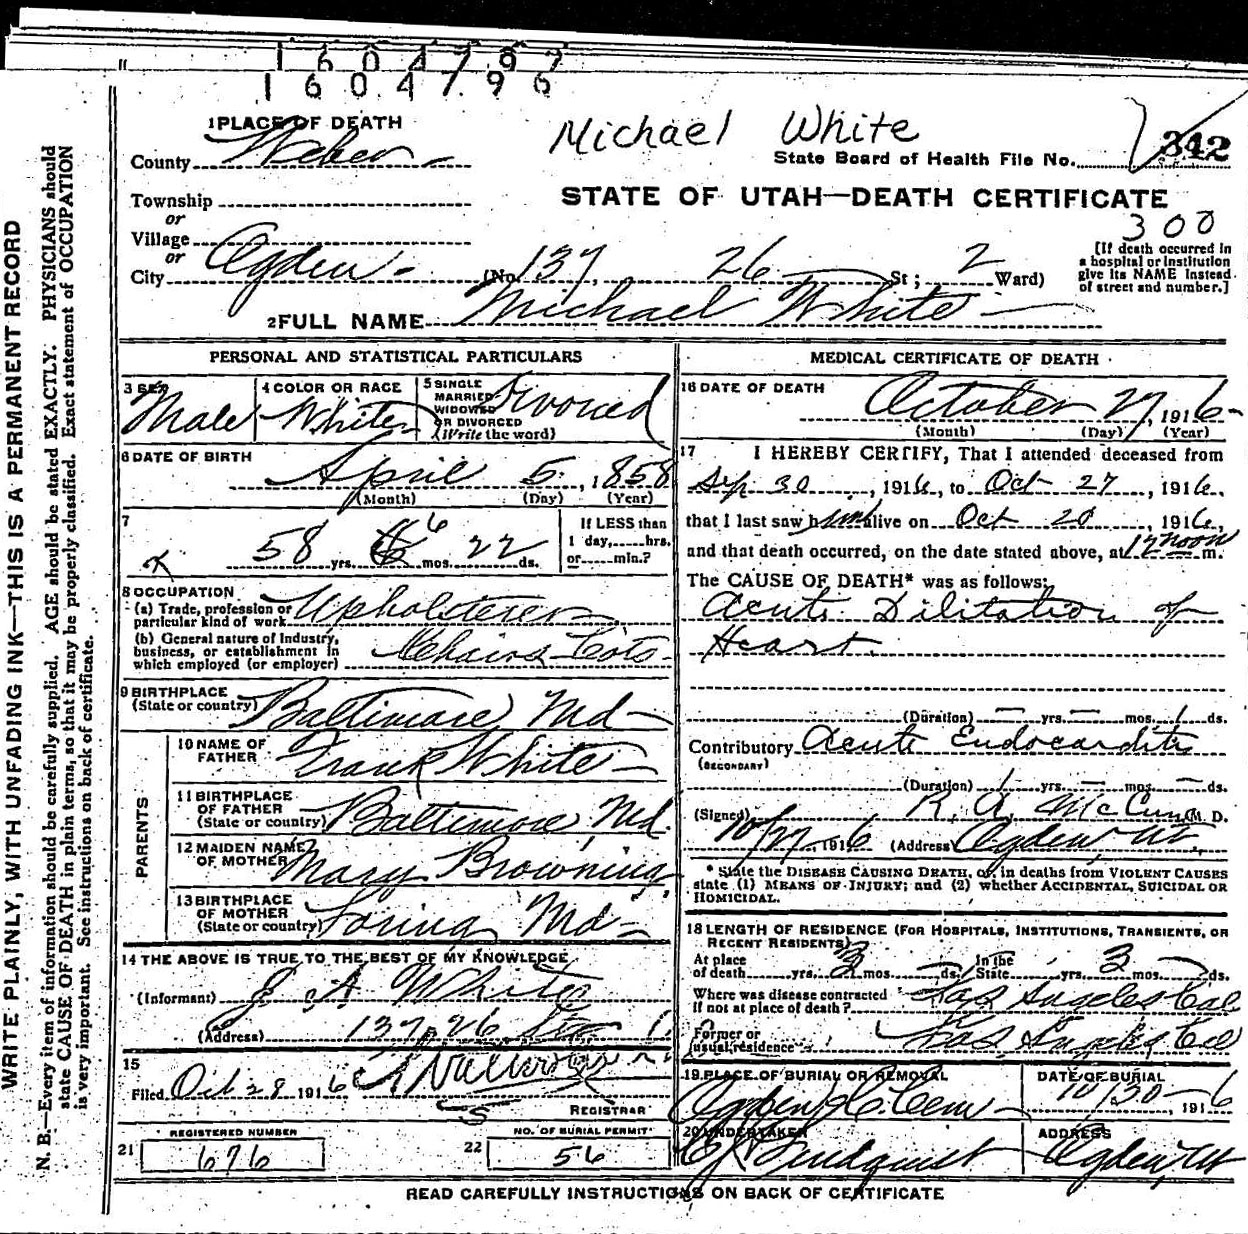 1 6 0 4 7 9 7
1 6 0 4 7 9 6
WRITE PLAINLY, WITH UNFADING INK—THIS IS A PERMANENT RECORD
N. B.—Every item of information should be carefully supplied. AGE should be stated EXACTLY. PHYSICIANS should
state CAUSE OF DEATH in plain terms, so that it may be properly classified. Exact statement of OCCUPATION
is very important. See instructions on back of certificate.
1 PLACE OF DEATH
County Weber
Township
or
Village
or
City Ogden (No. 137, 26 St; 2 Ward)
Michael White
State Board of Health File No. 342
STATE OF UTAH—DEATH CERTIFICATE
300
[If death occurred in
a hospital or institution
give its NAME instead
of street and number.]
2 FULL NAME Michael White
PERSONAL AND STATISTICAL PARTICULARS
3 SEX Male
4 COLOR OR RACE White
5 SINGLE
MARRIED
WIDOWED
OR DIVORCED
(Write the word)
Divorced
6 DATE OF BIRTH
April 5, 1858
(Month) (Day) (Year)
7
58 yrs. 6 mos. 22 ds.
If LESS than
1 day, hrs.
or min.?
8 OCCUPATION
(a) Trade, profession or
particular kind of work Upholsterer
(b) General nature of industry,
business, or establishment in
which employed (or employer) Chairs Cots
9 BIRTHPLACE
(State or country) Baltimore, Md
PARENTS
10 NAME OF
FATHER Frank White
11 BIRTHPLACE
OF FATHER
(State or country) Baltimore, Md.
12 MAIDEN NAME
OF MOTHER Mary Browning
13 BIRTHPLACE
OF MOTHER
(State or country) Md
14 THE ABOVE IS TRUE TO THE BEST OF MY KNOWLEDGE
(Informant) J. A. White
(Address) 137, 26 St
15
Filed Oct 28 1916
REGISTRAR
REGISTERED NUMBER
21 676
NO. OF BURIAL PERMIT
22 56
MEDICAL CERTIFICATE OF DEATH
16 DATE OF DEATH
October 27, 1916
(Month) (Day) (Year)
17 I HEREBY CERTIFY, That I attended deceased from
Sep 30, 1916, to Oct 27, 1916,
that I last saw him alive on Oct 20, 1916,
and that death occurred, on the date stated above, at 12 noon m.
The CAUSE OF DEATH* was as follows:
Acute Dilitation of
Heart.
(Duration) — yrs. — mos. 1 ds.
Contributory Acute Endocarditis
(SECONDARY)
(Duration) 1 yrs. — mos. — ds.
(Signed) R. A. McCune M. D.
10/27 1916 (Address) Ogden, Ut.
* State the DISEASE CAUSING DEATH, or, in deaths from VIOLENT CAUSES
state (1) MEANS OF INJURY; and (2) whether ACCIDENTAL, SUICIDAL OR
HOMICIDAL.
18 LENGTH OF RESIDENCE (FOR HOSPITALS, INSTITUTIONS, TRANSIENTS, OR
RECENT RESIDENTS)
At place In the
of death yrs. 3 mos. ds. State yrs. 3 mos. ds.
Where was disease contracted
if not at place of death? Los Angeles Cal
Former or
usual residence Los Angeles Cal
19 PLACE OF BURIAL OR REMOVAL
Ogden Cem
DATE OF BURIAL
10/30 1916
20 UNDERTAKER
Lindquist
ADDRESS
Ogden, Ut
READ CAREFULLY INSTRUCTIONS ON BACK OF CERTIFICATE